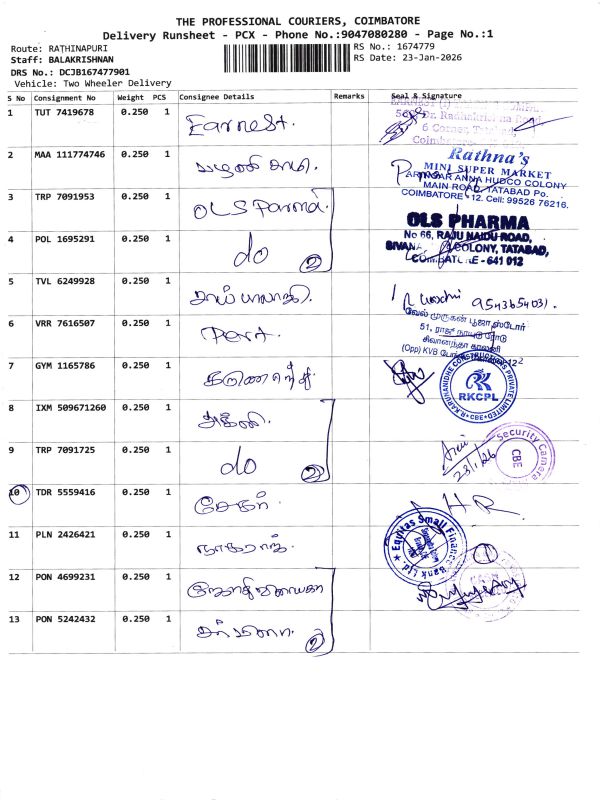 THE PROFESSIONAL COURIERS, COIMBATORE
Delivery Runsheet - PCX - Phone No.:9047080280 - Page No.:1
Route: RATHINAPURI
RS No.: 1674779
Staff: BALAKRISHNAN
RS Date: 23-Jan-2026
DRS No.: DCJB167477901
Vehicle: Two Wheeler Delivery
S No Consignment No Weight PCS Consignee Details Remarks Seal & Signature
1 TUT 7419678 0.250 1 Earnest.
6 Corner, Tatabad,
2 MAA 111774746 0.250 1 பழனி சாமி.
Rathna's
MINI SUPER MARKET
ANNA HUDCO COLONY
MAIN ROAD, TATABAD Po.
COIMBATORE - 12. Cell: 99526 76216.
3 TRP 7091953 0.250 1 OLS Parma.
OLS PHARMA
No 66, RAJU NAIDU ROAD,
COLONY, TATABAD,
COIMBATORE - 641 012
4 POL 1695291 0.250 1 do 2
5 TVL 6249928 0.250 1
9543654031.
வேல் முருகன் பூஜா ஸ்டோர்
51, ராஜ் நாயுடு ரோடு
சிவானந்தா காலனி
(Opp) KVB
6 VRR 7616507 0.250 1
7 GYM 1165786 0.250 1
RKCPL
CBE
8 IXM 509671260 0.250 1
9 TRP 7091725 0.250 1 do 2
23/1/26
Security Camera
CBE
10 TDR 5559416 0.250 1 சேகர்.
11 PLN 2426421 0.250 1 நாகராஜ்.
Equitas Small Finance Bank Ltd.
1
12 PON 4699231 0.250 1
13 PON 5242432 0.250 1 2